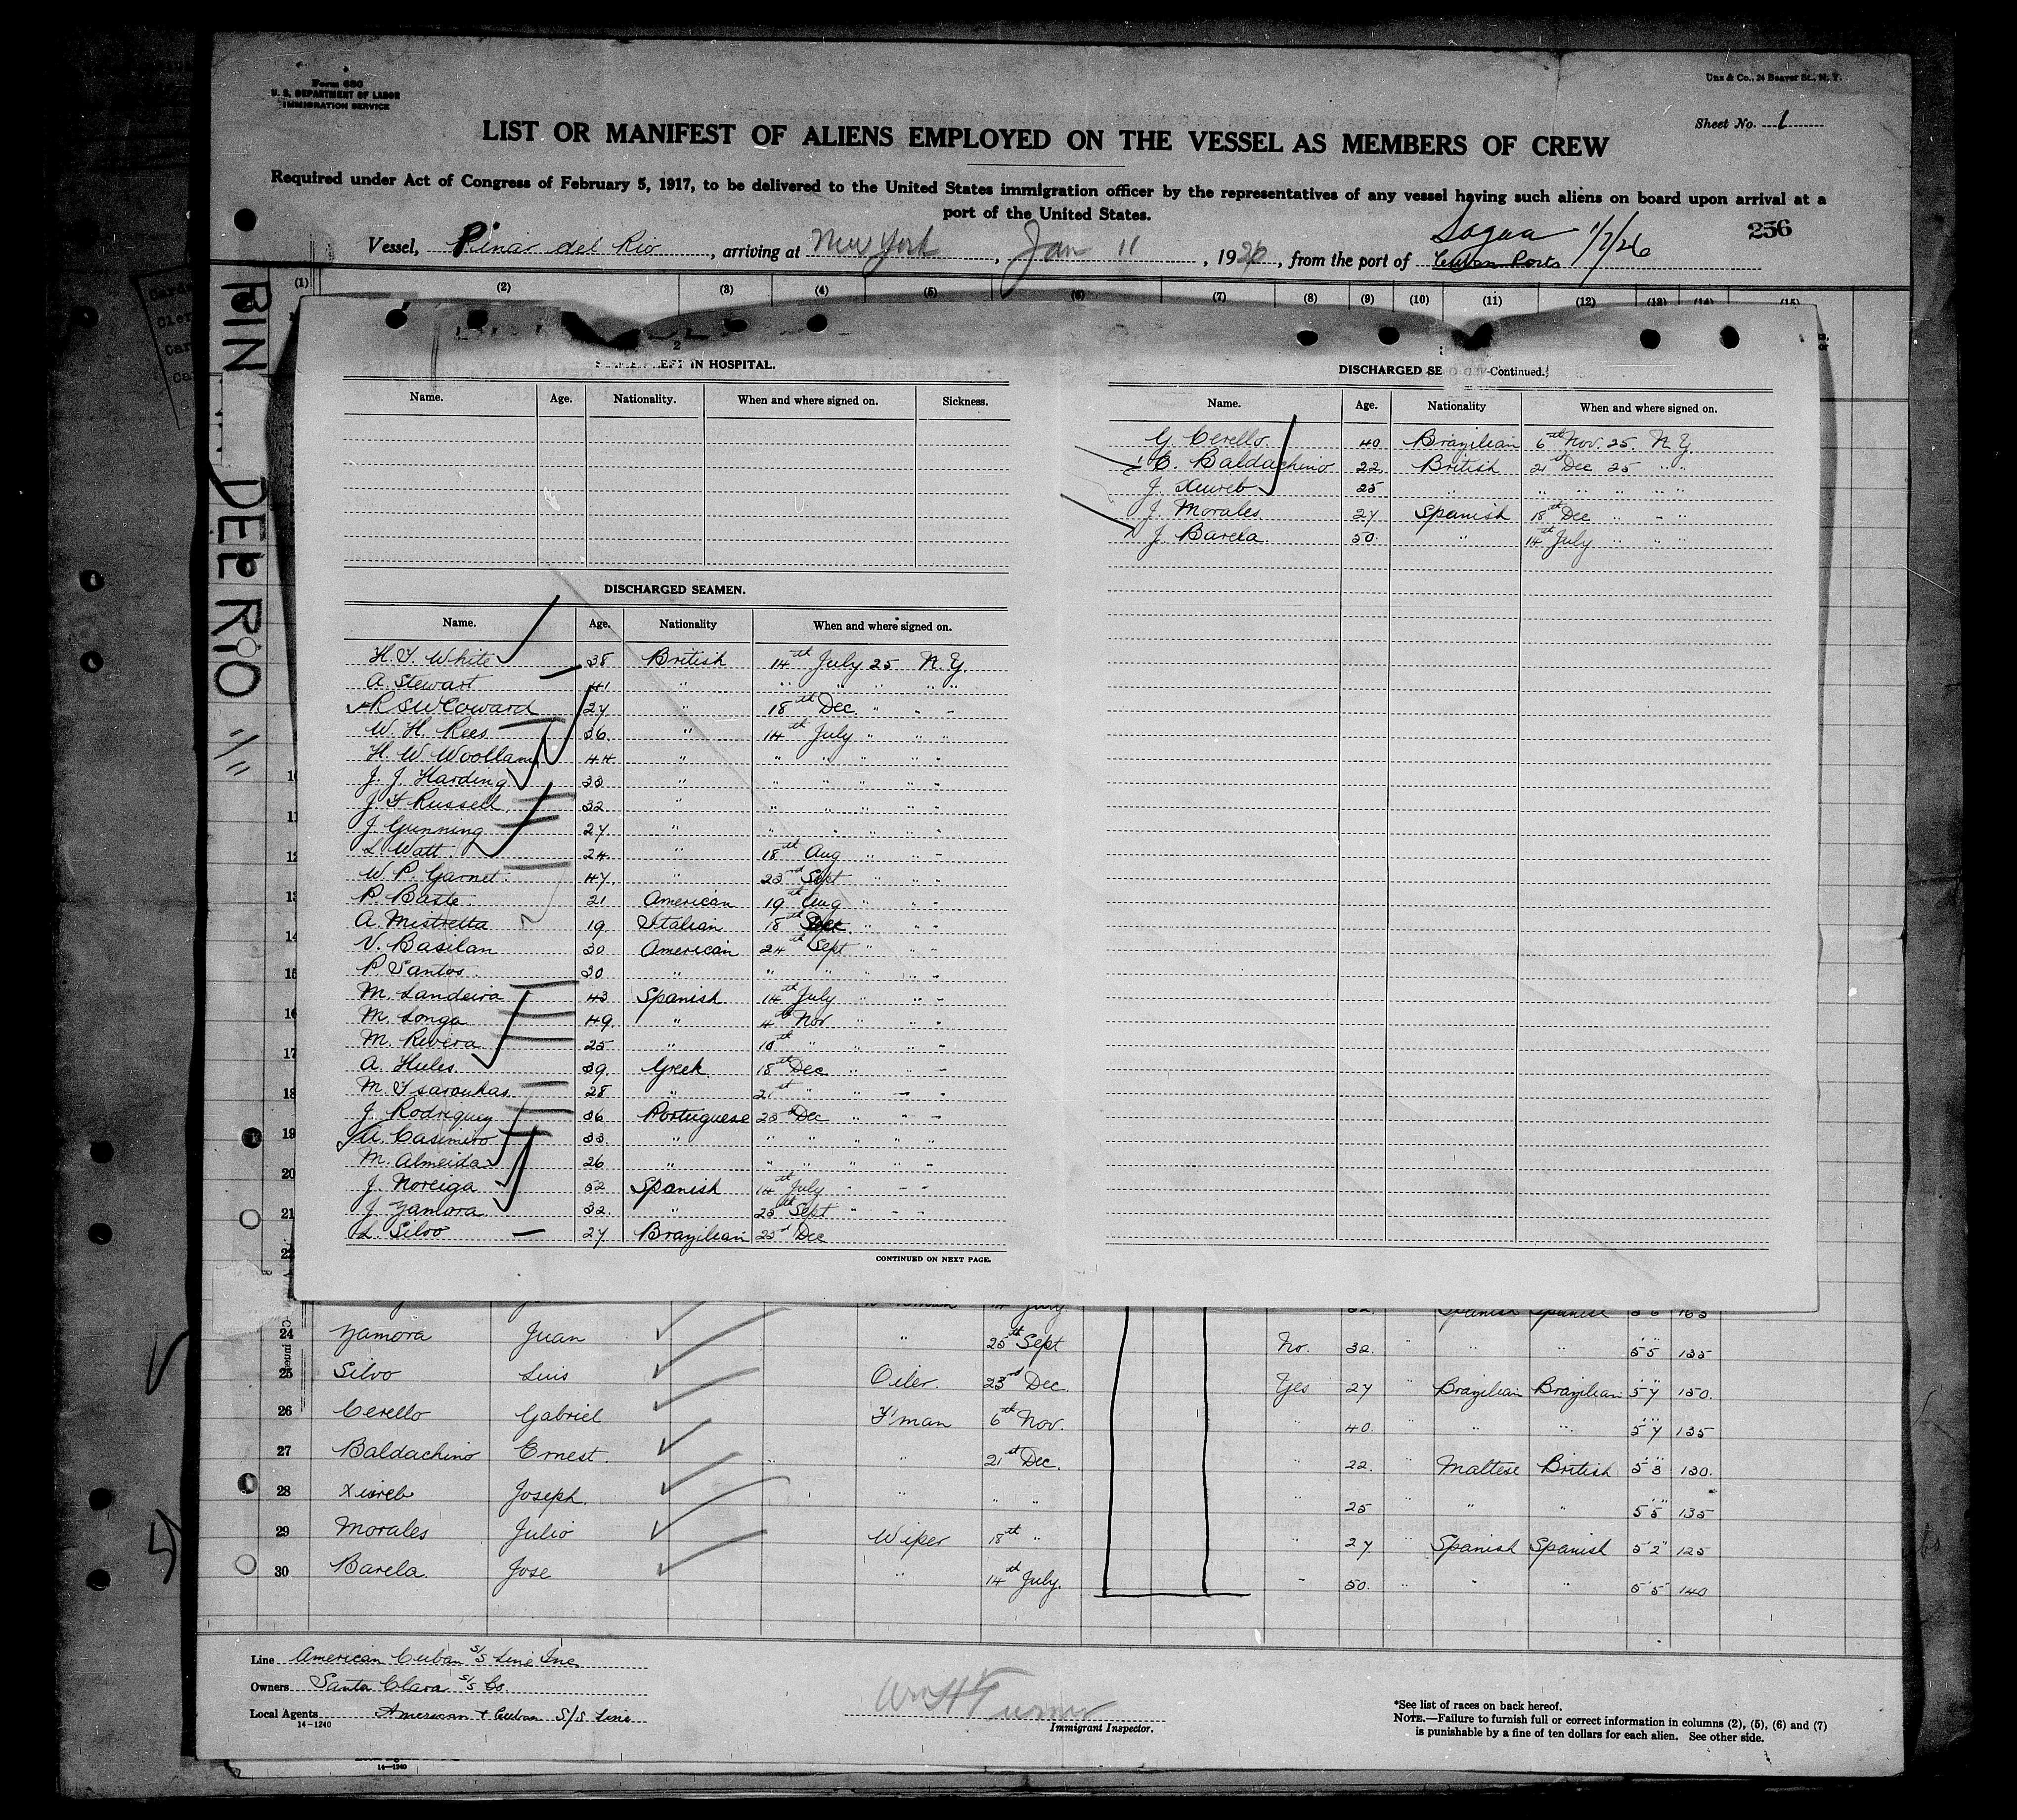 Form 680
U. S. DEPARTMENT OF LABOR
IMMIGRATION SERVICE
Unz & Co., 24 Beaver St., N. Y.
Sheet No. 1
LIST OR MANIFEST OF ALIENS EMPLOYED ON THE VESSEL AS MEMBERS OF CREW
Required under Act of Congress of February 5, 1917, to be delivered to the United States immigration officer by the representatives of any vessel having such aliens on board upon arrival at a
port of the United States.
256
Vessel, Pinar del Rio, arriving at New York, Jan 11, 1926, from the port of Cuban Ports Sagua 1/7/26
(1) (2) (3) (4) (5) (6) (7) (8) (9) (10) (11) (12) (13) (14) (15)
PIN DEL RIO 1/11
2
LEFT IN HOSPITAL.
Name. Age. Nationality. When and where signed on. Sickness.
DISCHARGED SEAMEN.
Name. Age. Nationality When and where signed on.
H. T. White 38 British 14th July 25 N. Y.
A. Stewart 41 " " " " " "
R S W Coward 27 " 18th Dec " " "
W. H. Rees 36 " 14th July " " "
H. W. Woollam 44 " " " " " "
J. J. Harding 33 " " " " " "
J F Russell 32 " " " " " "
J. Gunning 27 " " " " " "
L Watt 24 " 18th Aug " " "
W. P. Garnet 47 " 23rd Sept " " "
P. Baste 21 American 19th Aug " " "
A. Mistretta 19 Italian 18th Dec " " "
V. Basilan 30 American 24th Sept " " "
P Santos 30 " " " " " "
M. Landeira 43 Spanish 14th July " " "
M. Longa 49 " 4th Nov " " "
M. Rivera 25 " 10th " " " "
A. Hules 39 Greek 18th Dec " " "
M. Tsaroukas 28 " 21st " " " "
J. Rodriquez 36 Portuguese 23rd Dec " " "
A. Casimiro 33 " " " " " "
M. Almeida 26 " " " " " "
J. Noreiga 52 Spanish 14th July " " "
J Zamora 32 " 25th Sept " " "
L. Silvo 27 Brazilian 23rd Dec
CONTINUED ON NEXT PAGE.
DISCHARGED SE -Continued.
Name. Age. Nationality When and where signed on.
G. Cerello 40 Brazilian 6th Nov. 25 N. Y.
E. Baldachino 22 British 21st Dec 25 " "
J. Xuereb 25 " " " " " "
J. Morales 27 Spanish 18th Dec " " "
J. Barela 50 " 14th July " " "
10
11
12
13
14
15
16
17
18
19
20
21
22
24 Zamora Juan " 25th Sept No. 32 " " " 5'5" 135
25 Silvo Luis Oiler 23rd Dec. Yes 27 " Brazilian Brazilian 5'7" 150
26 Cerello Gabriel F'man 6th Nov. " 40 " " " 5'7" 135
27 Baldachino Ernest " 21st Dec. " 22 " Maltese British 5'3" 130
28 Xuereb Joseph " " " " 25 " " " 5'5" 135
29 Morales Julio Wiper 18th " " 27 " Spanish Spanish 5'2" 125
30 Barela Jose " 14th July " 50 " " " 5'5" 140
Line American Cuban S/S Line Inc
Owners Santa Clara S/S Co.
Local Agents American & Cuban S/S Line
14-1240
Turner
Immigrant Inspector.
*See list of races on back hereof.
NOTE.—Failure to furnish full or correct information in columns (2), (5), (6) and (7)
is punishable by a fine of ten dollars for each alien. See other side.
14-1240